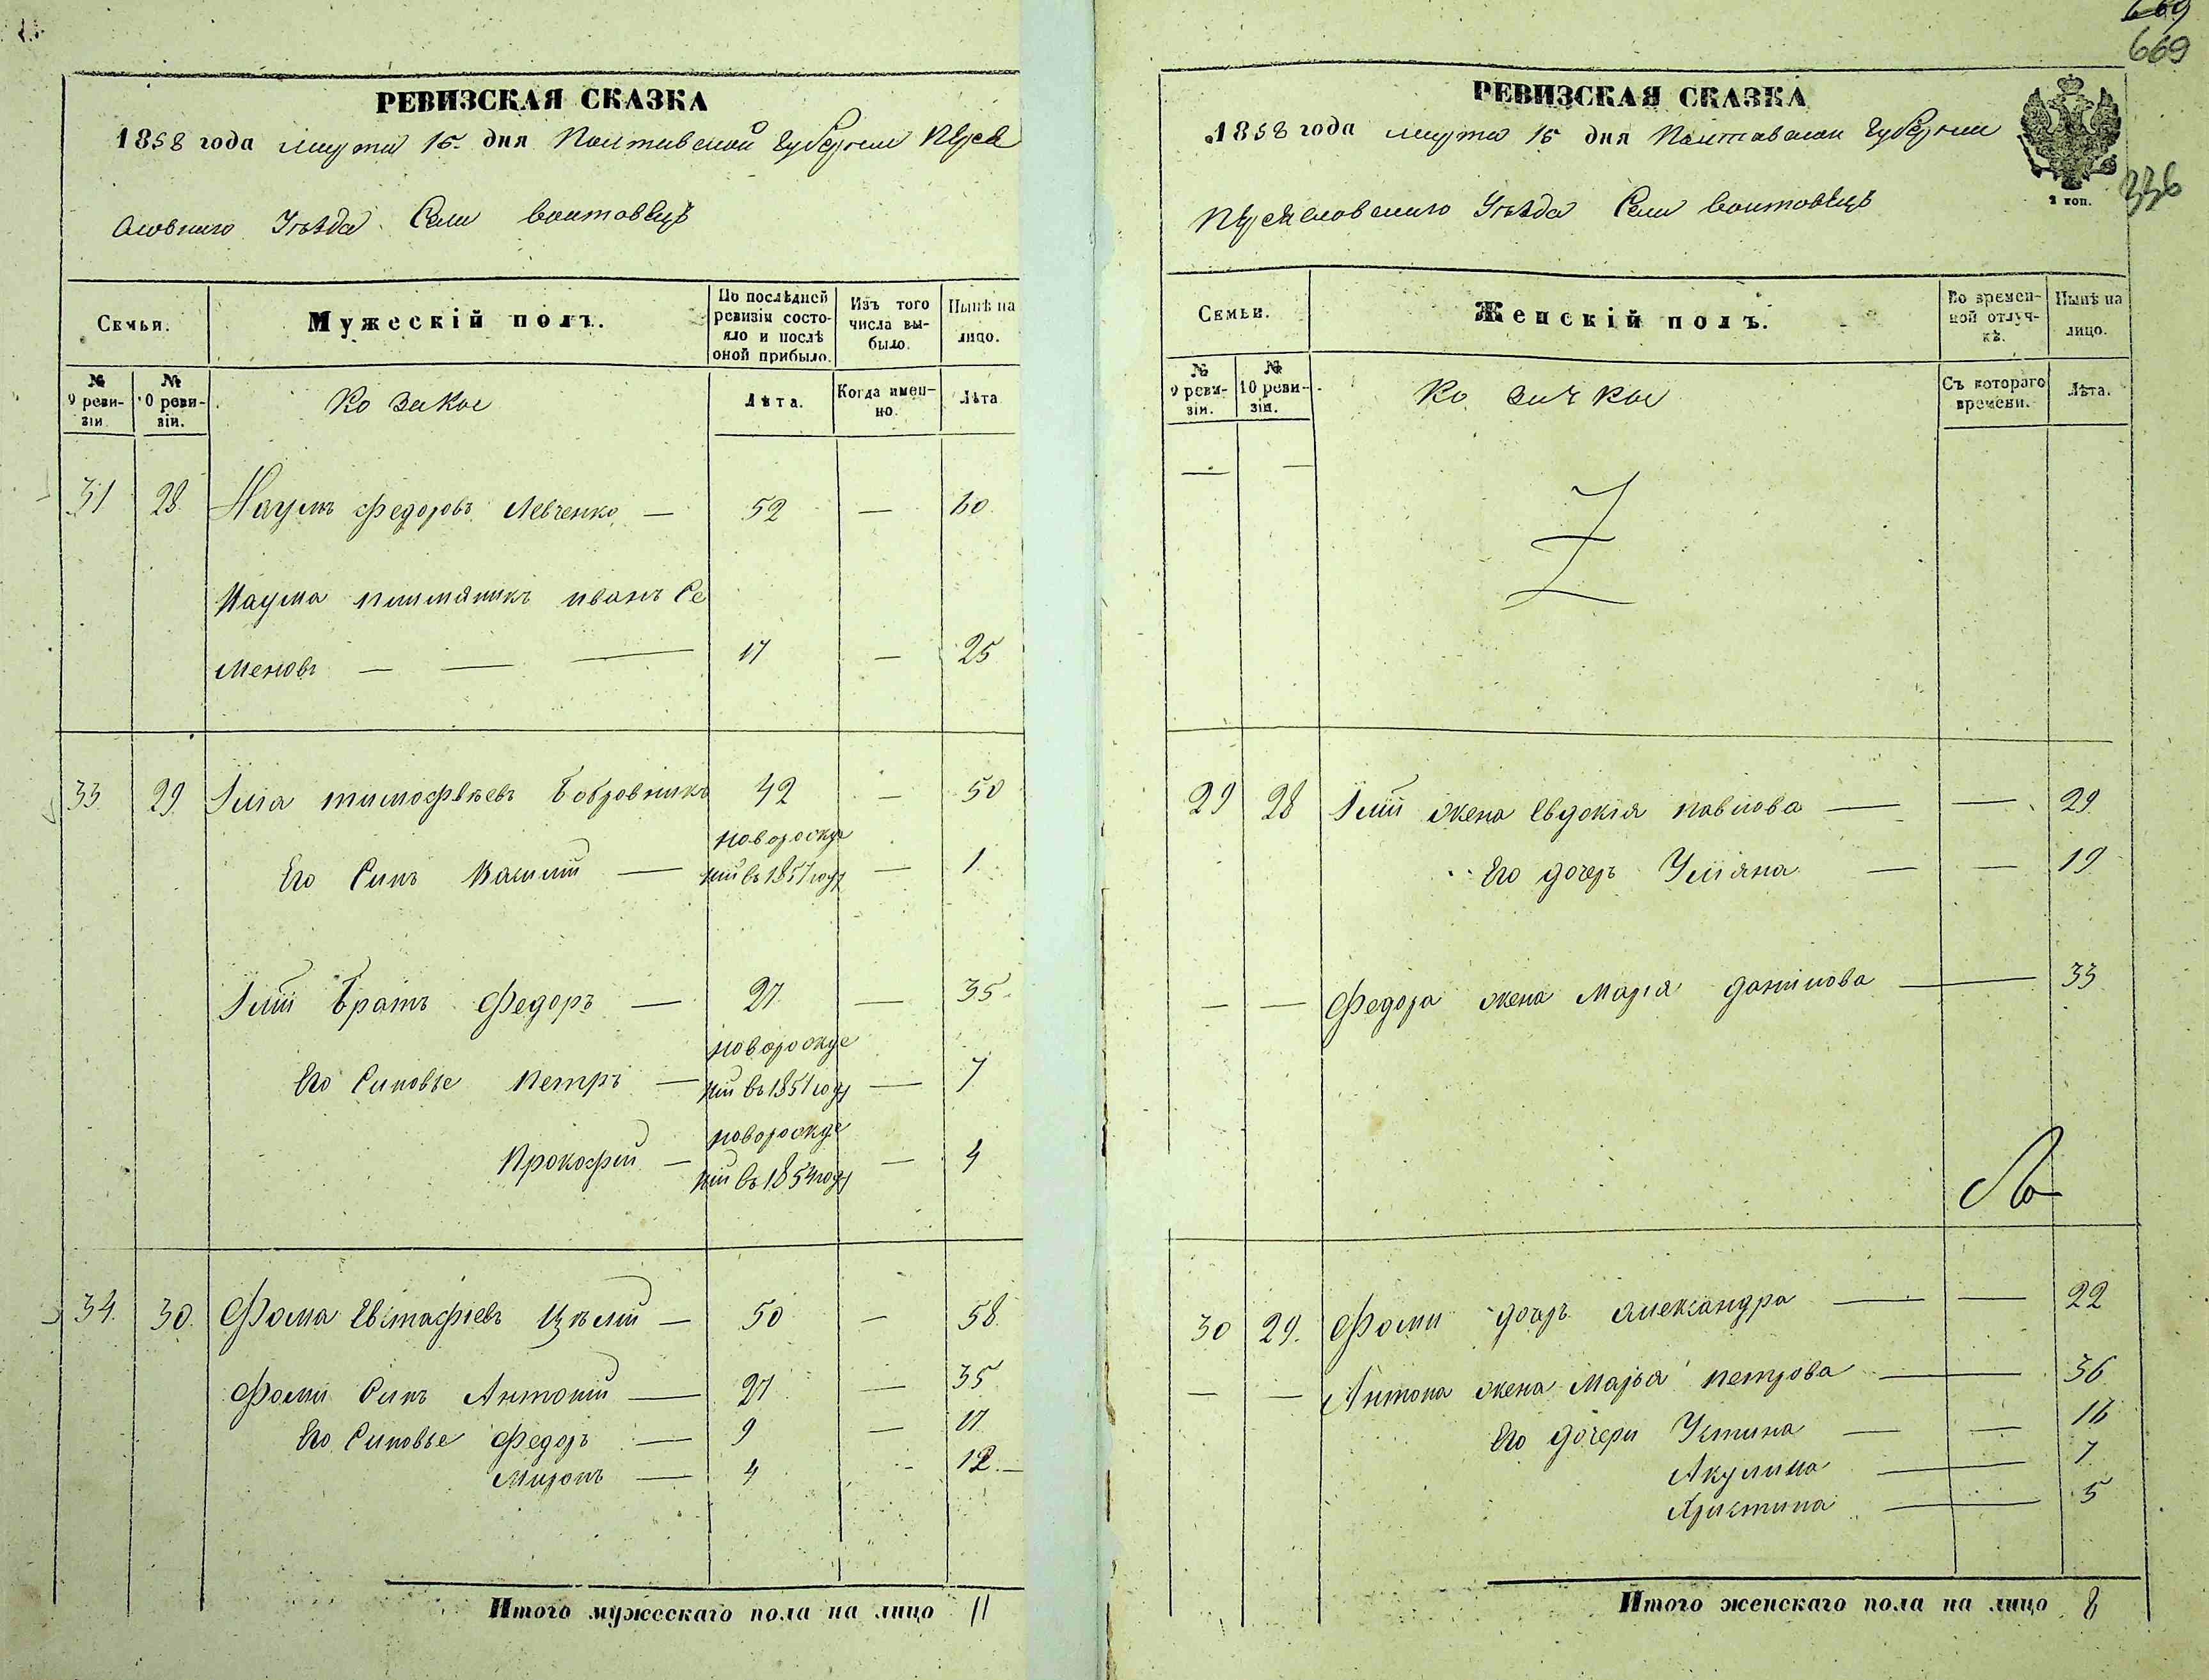 РЕВИЗСКАЯ СКАЗКА
1858 года марта 15 дня Полтавской Губернии Перея
словского Уѣзда Села Воитовецъ
Семьи.
Мужескій полъ.
По послѣдней ревизіи состояло и послѣ оной прибыло.
Изъ того числа выбыло.
Нынѣ на лицо.
№ 9 ревизіи.
№ 10 ревизіи.
Козакое
Лѣта.
Когда именно.
Лѣта
31 28 Наумъ Федоровъ Левченко — 52 — 60
Наума племяникъ иванъ Се
меновъ — — — 17 — 25
33 29 Илiа тимофѣевъ Бобровникъ 42 — 50
Его Синъ Василій — новорожде
ній въ 1857 году — 1
Иліи Братъ Федоръ — 27 — 35
Его Синовье Петръ — новорожде
ній въ 1851 году — 7
Прокофій — новорожде
ній въ 1854 году — 4
34. 30. Фома Евстафіевъ Цѣлій — 50 — 58
Фоми Синъ Антоній — 27 — 35
Его Синовье Федоръ — 9 — 17
Миронъ — 4 - 12 —
Итого мужескаго пола на лицо 11
669
669
РЕВИЗСКАЯ СКАЗКА
1858 года марта 15 дня Полтавской Губернии
2 коп.
336
Переясловского Уѣзда Села Воитовецъ
Семьи.
Женскій полъ.
Во временной отлучкѣ.
Нынѣ на лицо.
№ 9 ревизіи.
№ 10 ревизіи.
Козачкое
Съ котораго времени.
Лѣта.
— —
29 28 Иліи жена Евдокія павлова — — 29
Его дочеръ Уліяна — — 19
— — Федора жена Марiя данилова — 33
30 29. Фоми дочеръ александра — — 22
— — Антона жена Марья петрова — 36
Его дочери Устина — — 16
Акулина — 7
Христина — 5
Итого женскаго пола на лицо 8